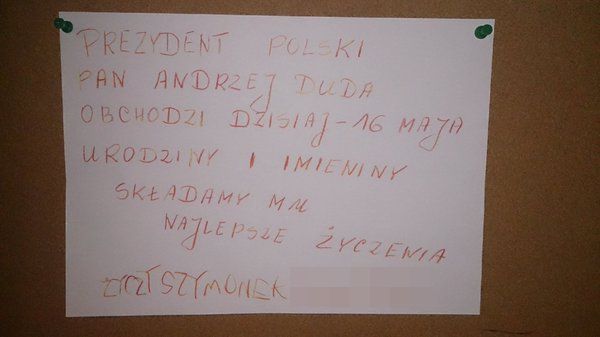 PREZYDENT POLSKI
PAN ANDRZEJ DUDA
OBCHODZI DZISIAJ - 16 MAJA
URODZINY I IMIENINY
SKŁADAMY MU
NAJLEPSZE ŻYCZENIA
SZYMONEK